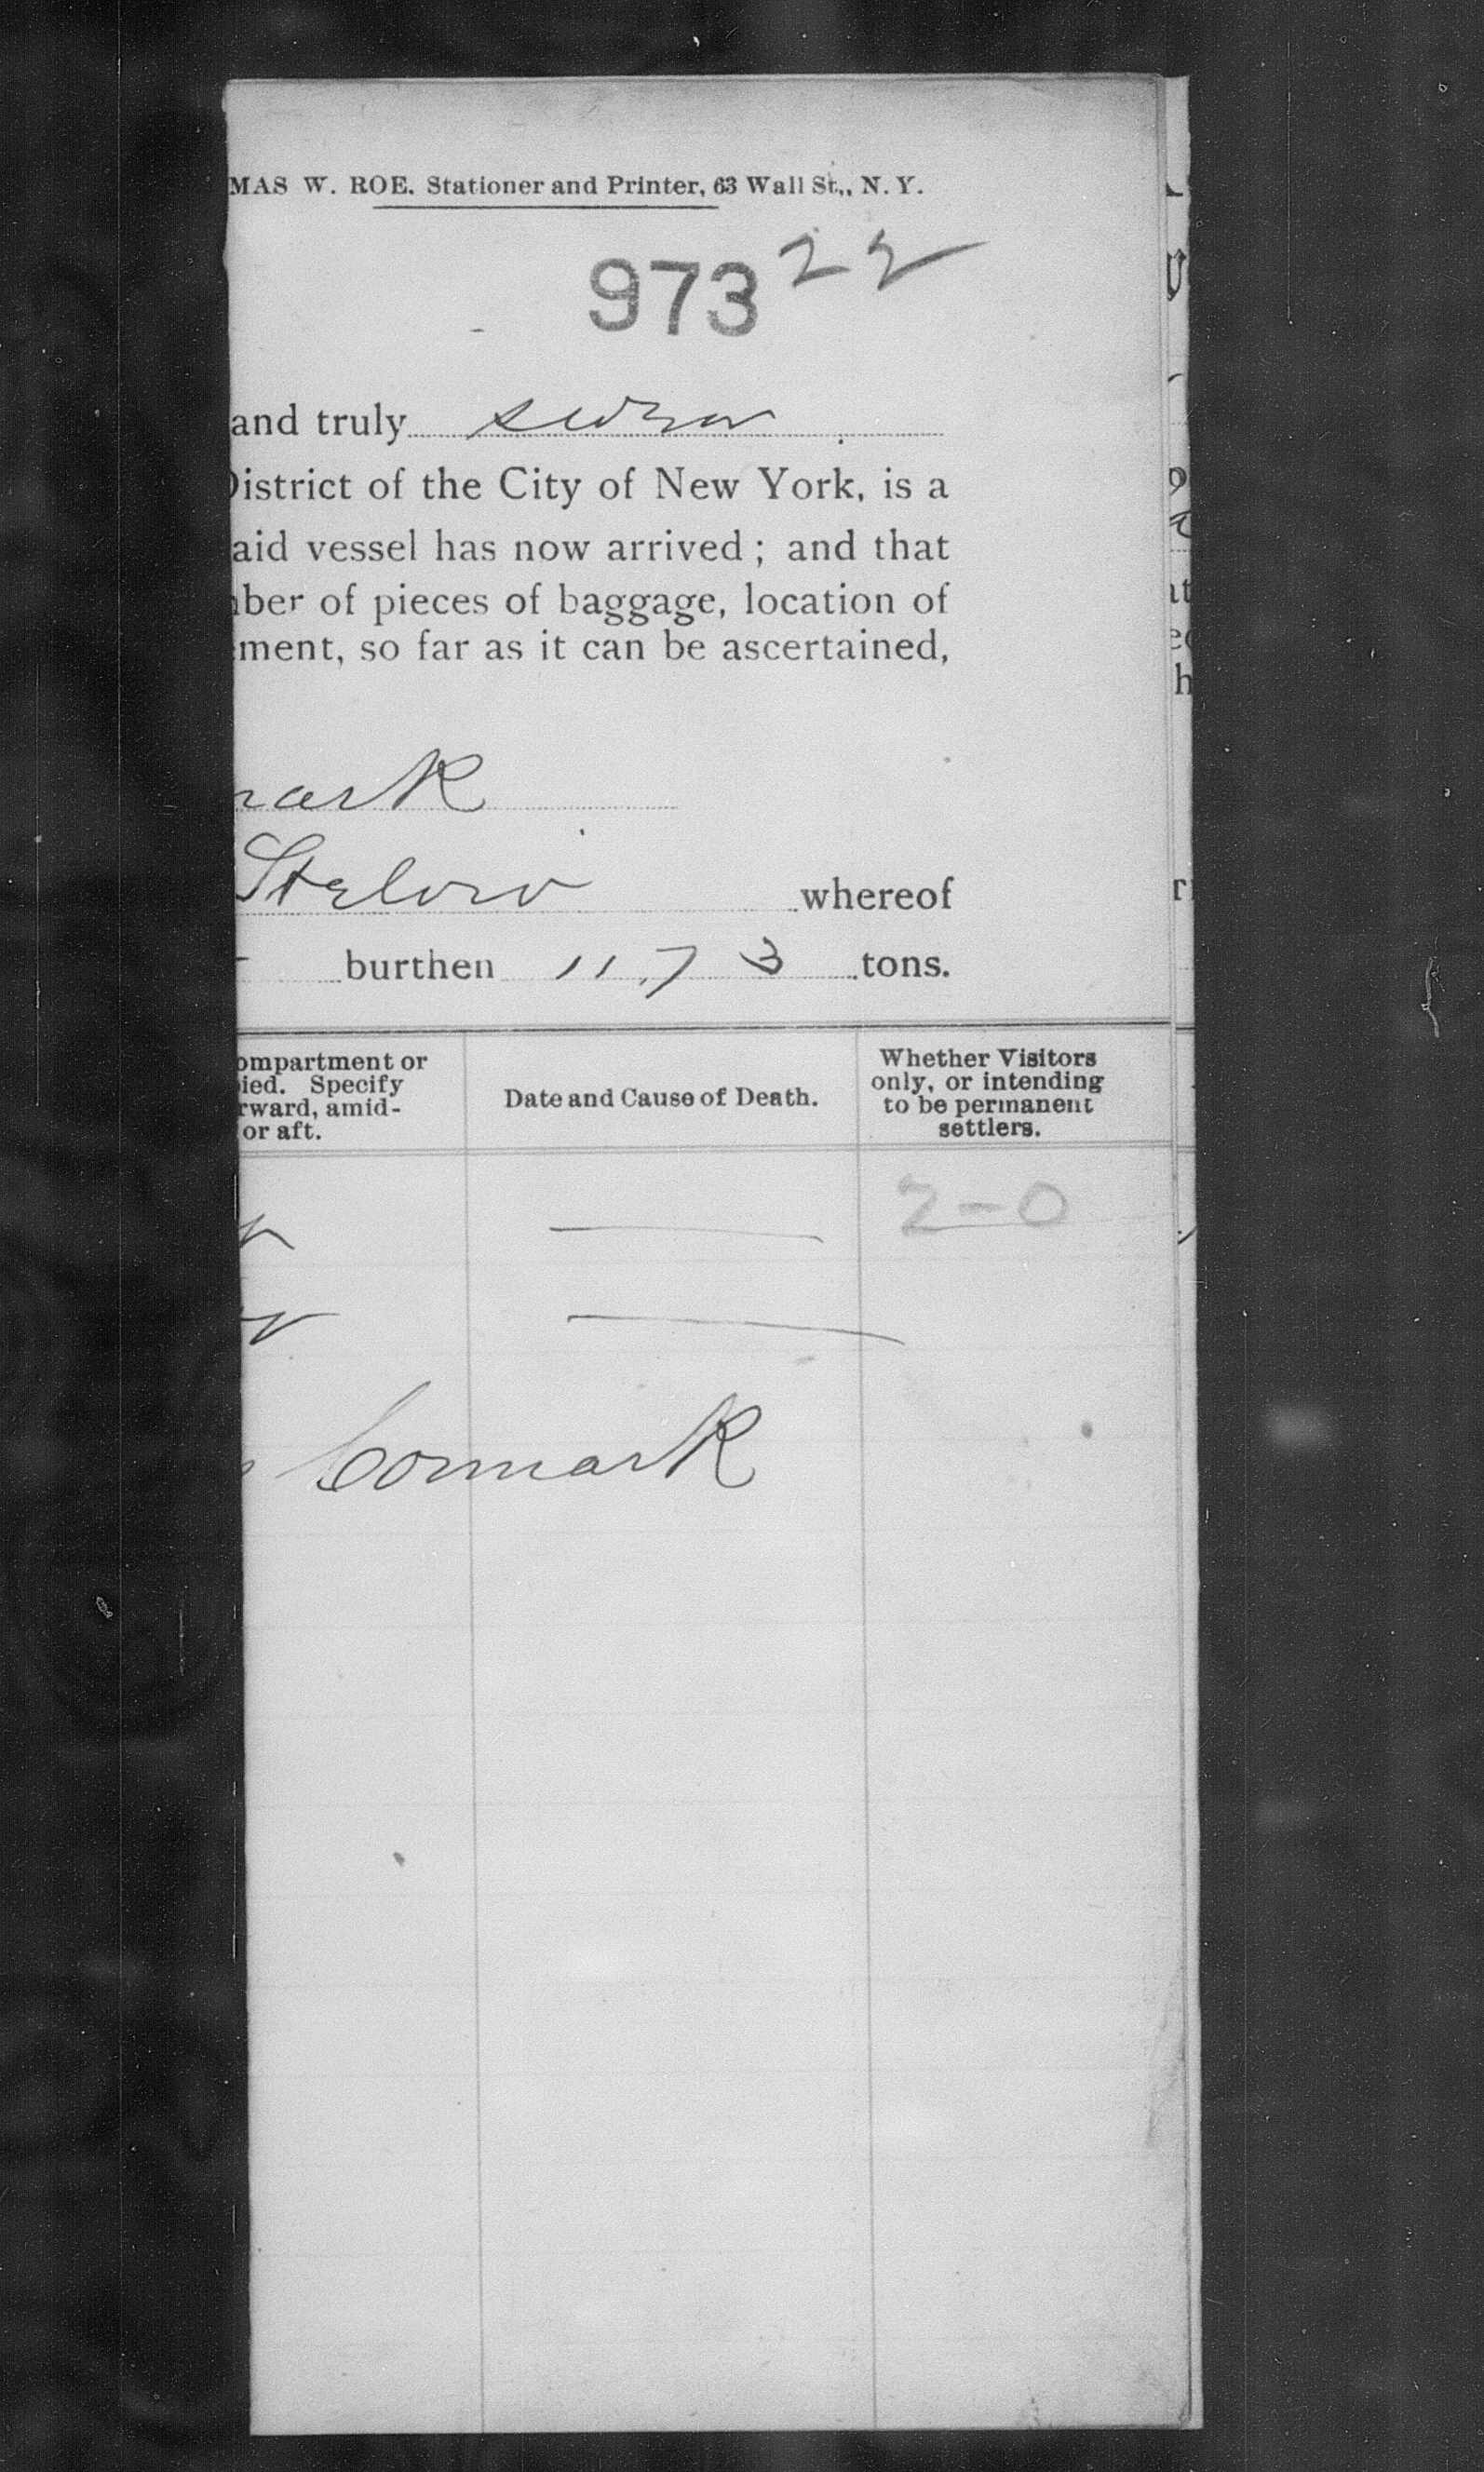 MAS W. ROE, Stationer and Printer, 63 Wall St., N. Y.
973 22
and truly
District of the City of New York, is a
aid vessel has now arrived; and that
ber of pieces of baggage, location of
ment, so far as it can be ascertained,
mark
whereof
burthen 1173 tons.
ompartment or
ied. Specify
rward, amid-
or aft.
Date and Cause of Death.
Whether Visitors
only, or intending
to be permanent
settlers.
2-0
Cormark